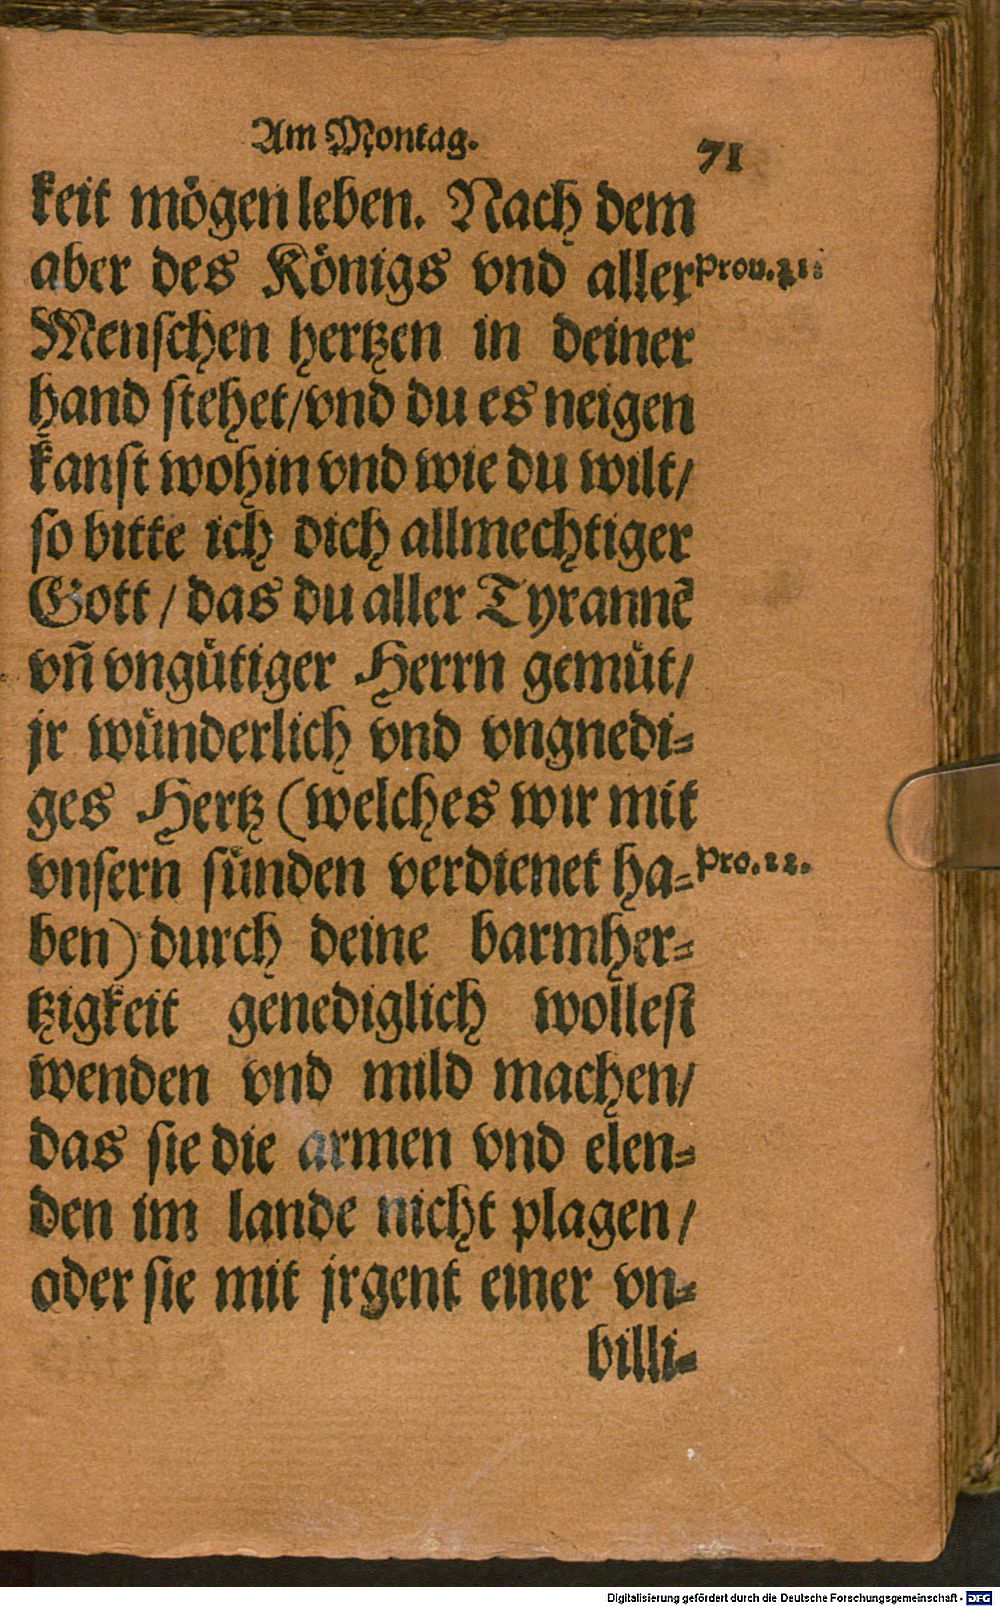 Am Montag. 71
keit mögen leben. Nach dem
aber des Königs vnd aller Prou. 21:
Menschen hertzen in deiner
hand stehet/vnd du es neigen
kanst wohin vnd wie du wilt/
so bitte ich dich allmechtiger
Gott/das du aller Tyrannẽ
vñ vngütiger Herrn gemüt/
jr wünderlich vnd vngnedi⸗
ges Hertz (welches wir mit
vnsern sünden verdienet ha⸗ Pro. 22.
ben) durch deine barmher⸗
tzigkeit genediglich wollest
wenden vnd mild machen/
das sie die armen vnd elen⸗
den im lande nicht plagen/
oder sie mit jrgent einer vn⸗
billi⸗
Digitalisierung gefördert durch die Deutsche Forschungsgemeinschaft - DFG